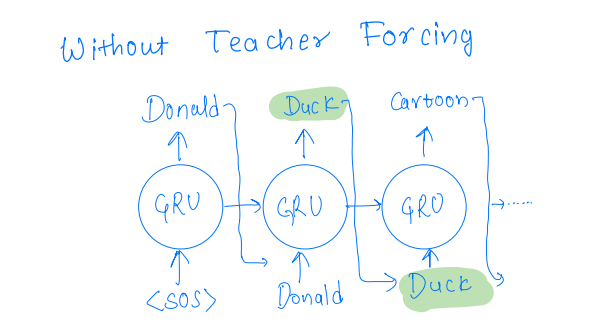 Without Teacher Forcing
Donald Duck Cartoon
GRU GRU GRU
<SOS> Donald Duck